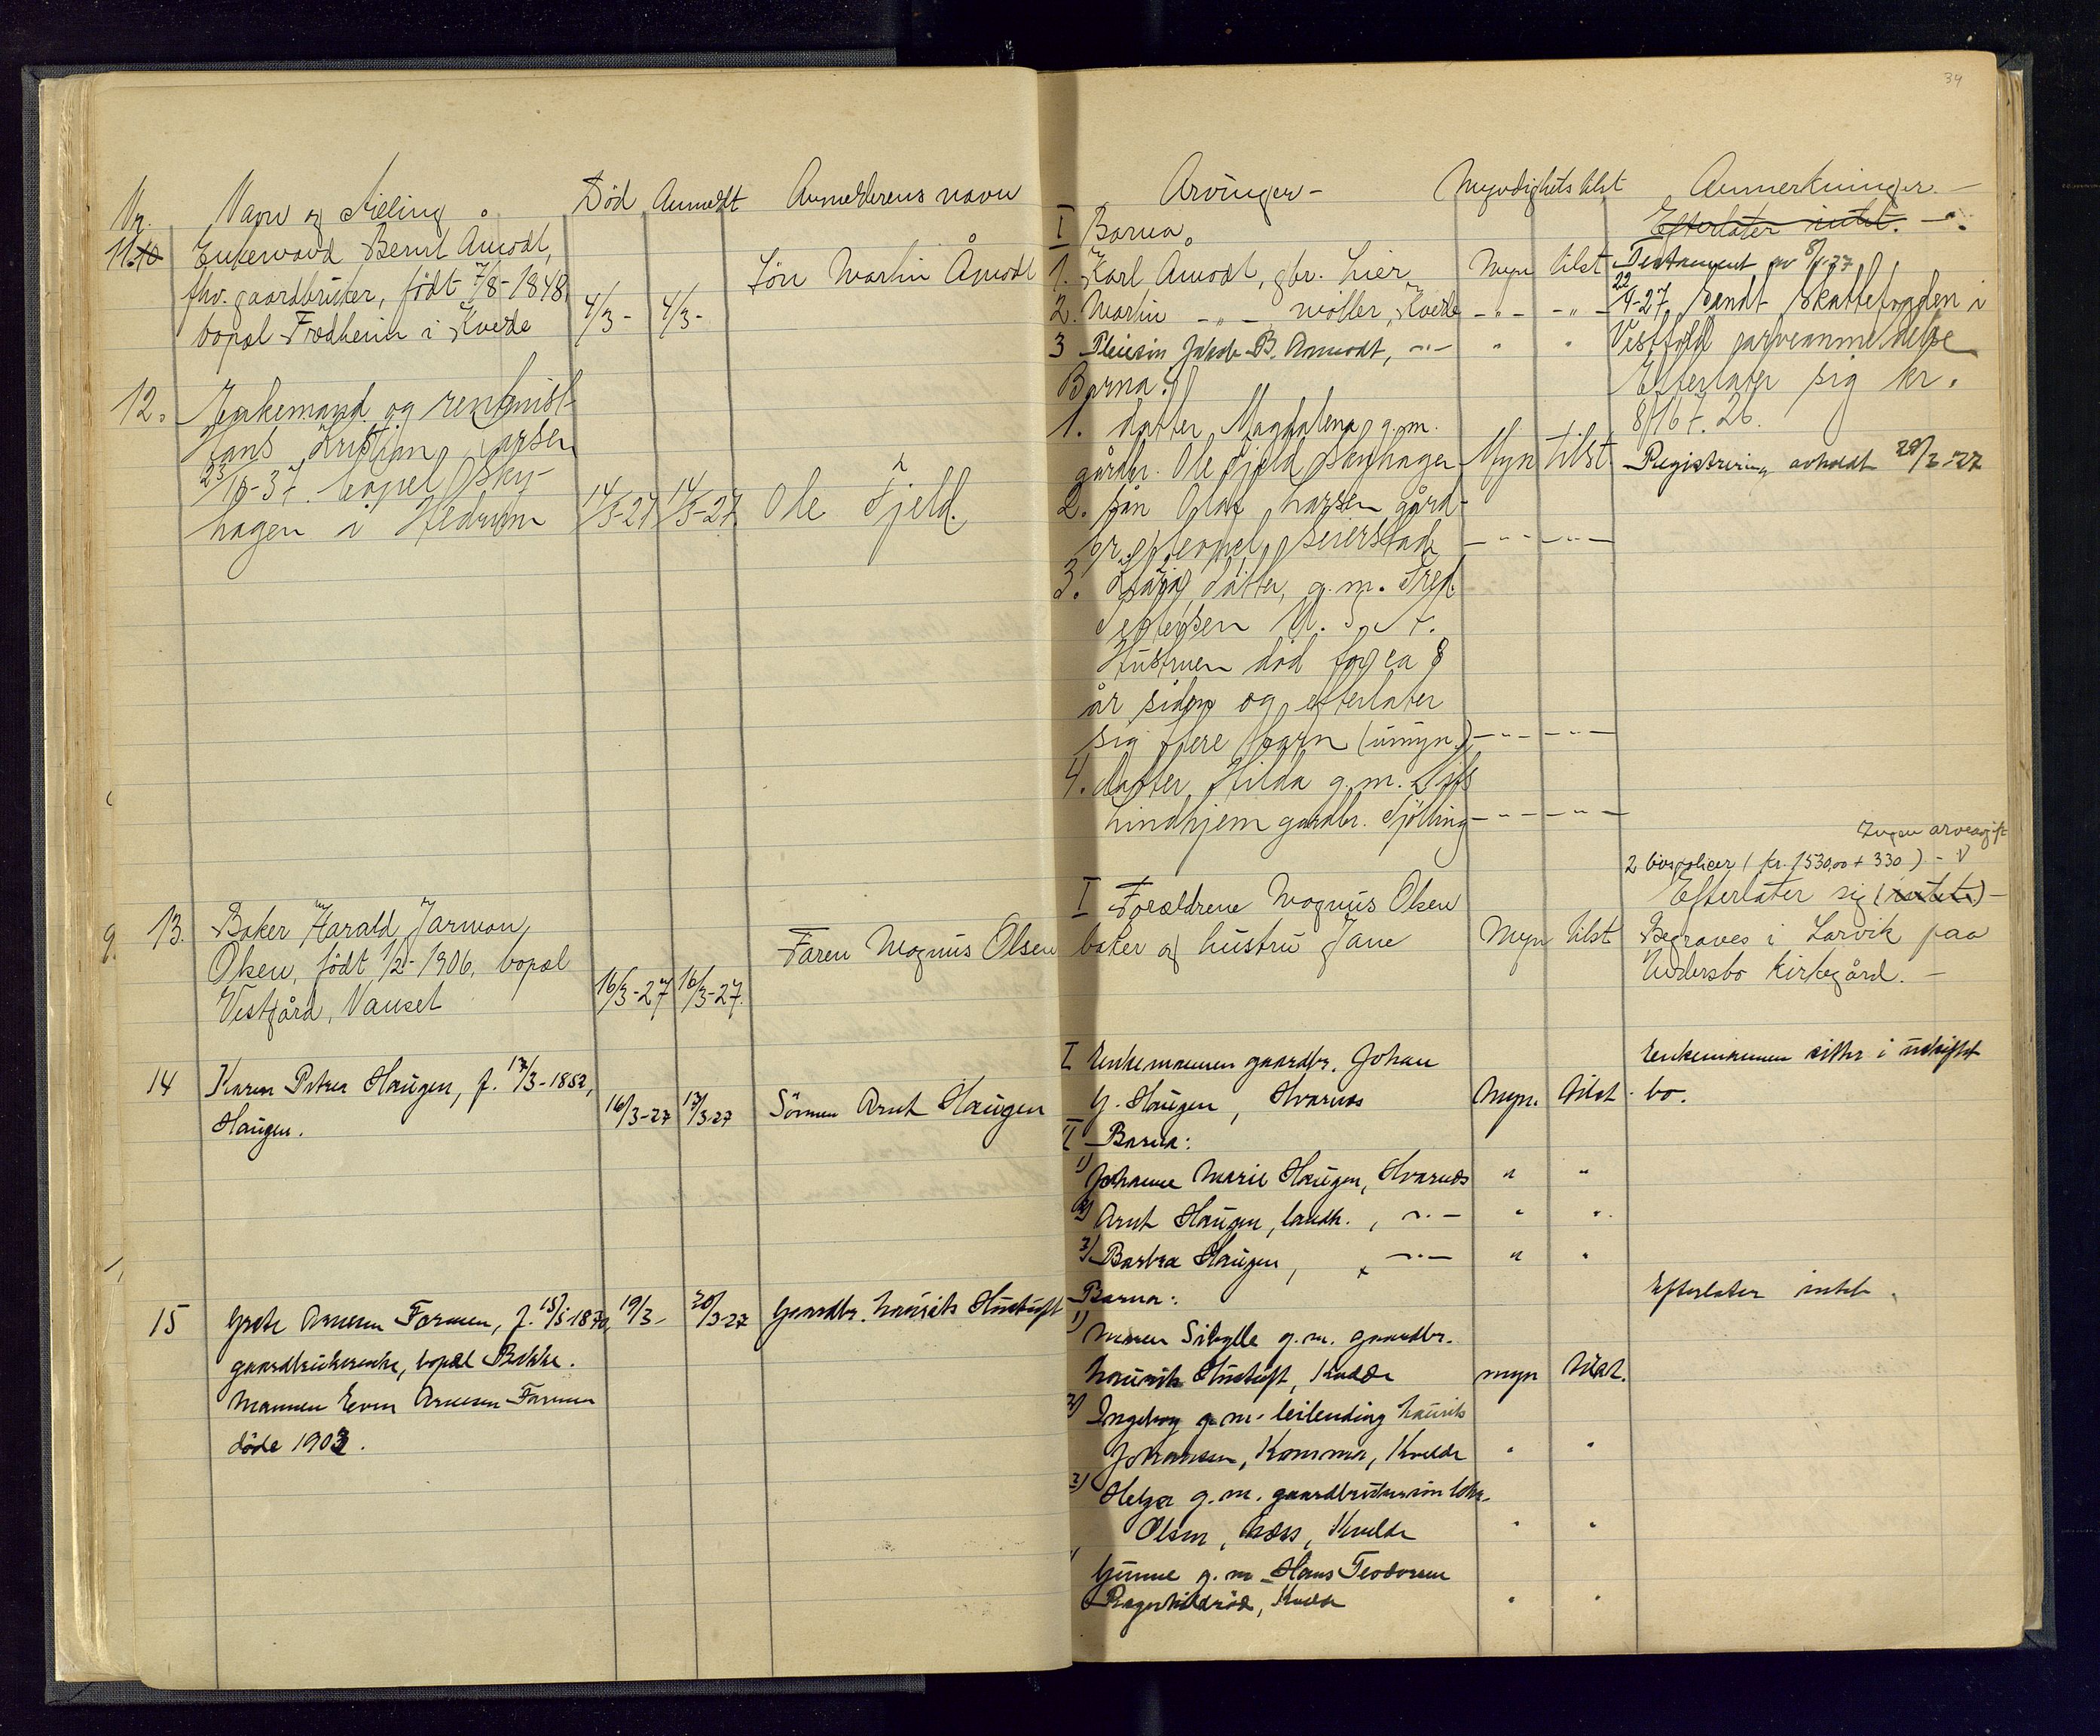 34
Nr. Navn og stilling. Død Anmeldt Anmelderens navn
11. 10 Enkemand Bernt Amodt,
fhv. gaardbruker, født 7/8-1848,
bopæl Fredheim i Kvelde 4/3- 4/3-
Søn Martin Åmodt
12. Enkemand og rentenist
Hans Kristian Larsen
23/10-37. bopel Sky-
hagen i Hedrum 14/3-27 14/3-27 Ole Fjeld.
13. Baker Harald Jarman
Olsen, født 1/2-1906, bopæl
Vestgård, Nanset 16/3-27 16/3-27.
Faren Magnus Olsen
14 Karen Petrea Haugen, f. 17/3-1852,
Haugen. 16/3-27 17/3-27 Sønnen Arnt Haugen
15 Grete Arnesen Farmen, f. 15/5-1870, 19/3- 20/3-27 Gaardbr. Laurits
gaardbrukerenke, bopæl Bakke.
Mannen Even Arnesen Farmen
døde 1903.
Arvinger- Myndighets tilst Anmerkninger.-
I Barna. Efterlater intet. -
1. Karl Amodt, gbr. Lier Myn tilst Testament av
2. Martin -"- møller, Kvelde -"- -"- 22/4-27 sendt skattefogden i
3 Pleiesøn Jakob B. Aamodt, -"- " " Vestfold arveanmeldelse
Barna: Efterlater sig kr.
1. datter Magdalena g.m. 8167.26.
gårdbr. Ole Fjeld Skyhagen Myn tilst Registrering avholdt 28/3-27
2. søn Olaf Larsen gård-
br. bopel Seierstad -"- -"-
3. datter, g.m. Fred.
U.S.A.
Hustruen død for ca 8
år siden og efterlater
sig flere barn (umyn.) -"- -"-
4. datter Hilda g.m.
Lindhjem gardbr. Tjølling -"- -"-
Ingen arveavgift
2 livspolicer (kr. 1530,00 + 330) -
I Forældrene Magnus Olsen Efterlater sig (intet) -
baker og hustru Jane Myn tilst Begraves i Larvik paa
Undersbo Kirkegård. -
I Enkemannen gaardbr. Johan Enkemannen sitter i uskiftet
G. Haugen, Hvarnes Myn. tilst. bo.
II Barna:
1) Johanne Marie Haugen, Hvarnes " "
2) Arnt Haugen, landh., -"- " "
3) Barbra Haugen, -"- " "
Barna: Efterlater intet.
1) Maren Sibylle g.m. gaardbr.
Laurits , Kvelde myn tilst.
2) Ingeborg g.m. leilending Laurits
Johansen, Komma, Kvelde " "
3) Helga g.m. gaardbrukersøn
Olsen, Næss, Kvelde " "
Gunne g.m. Hans Teodorsen
Ragnhildrød, Kvelde " "